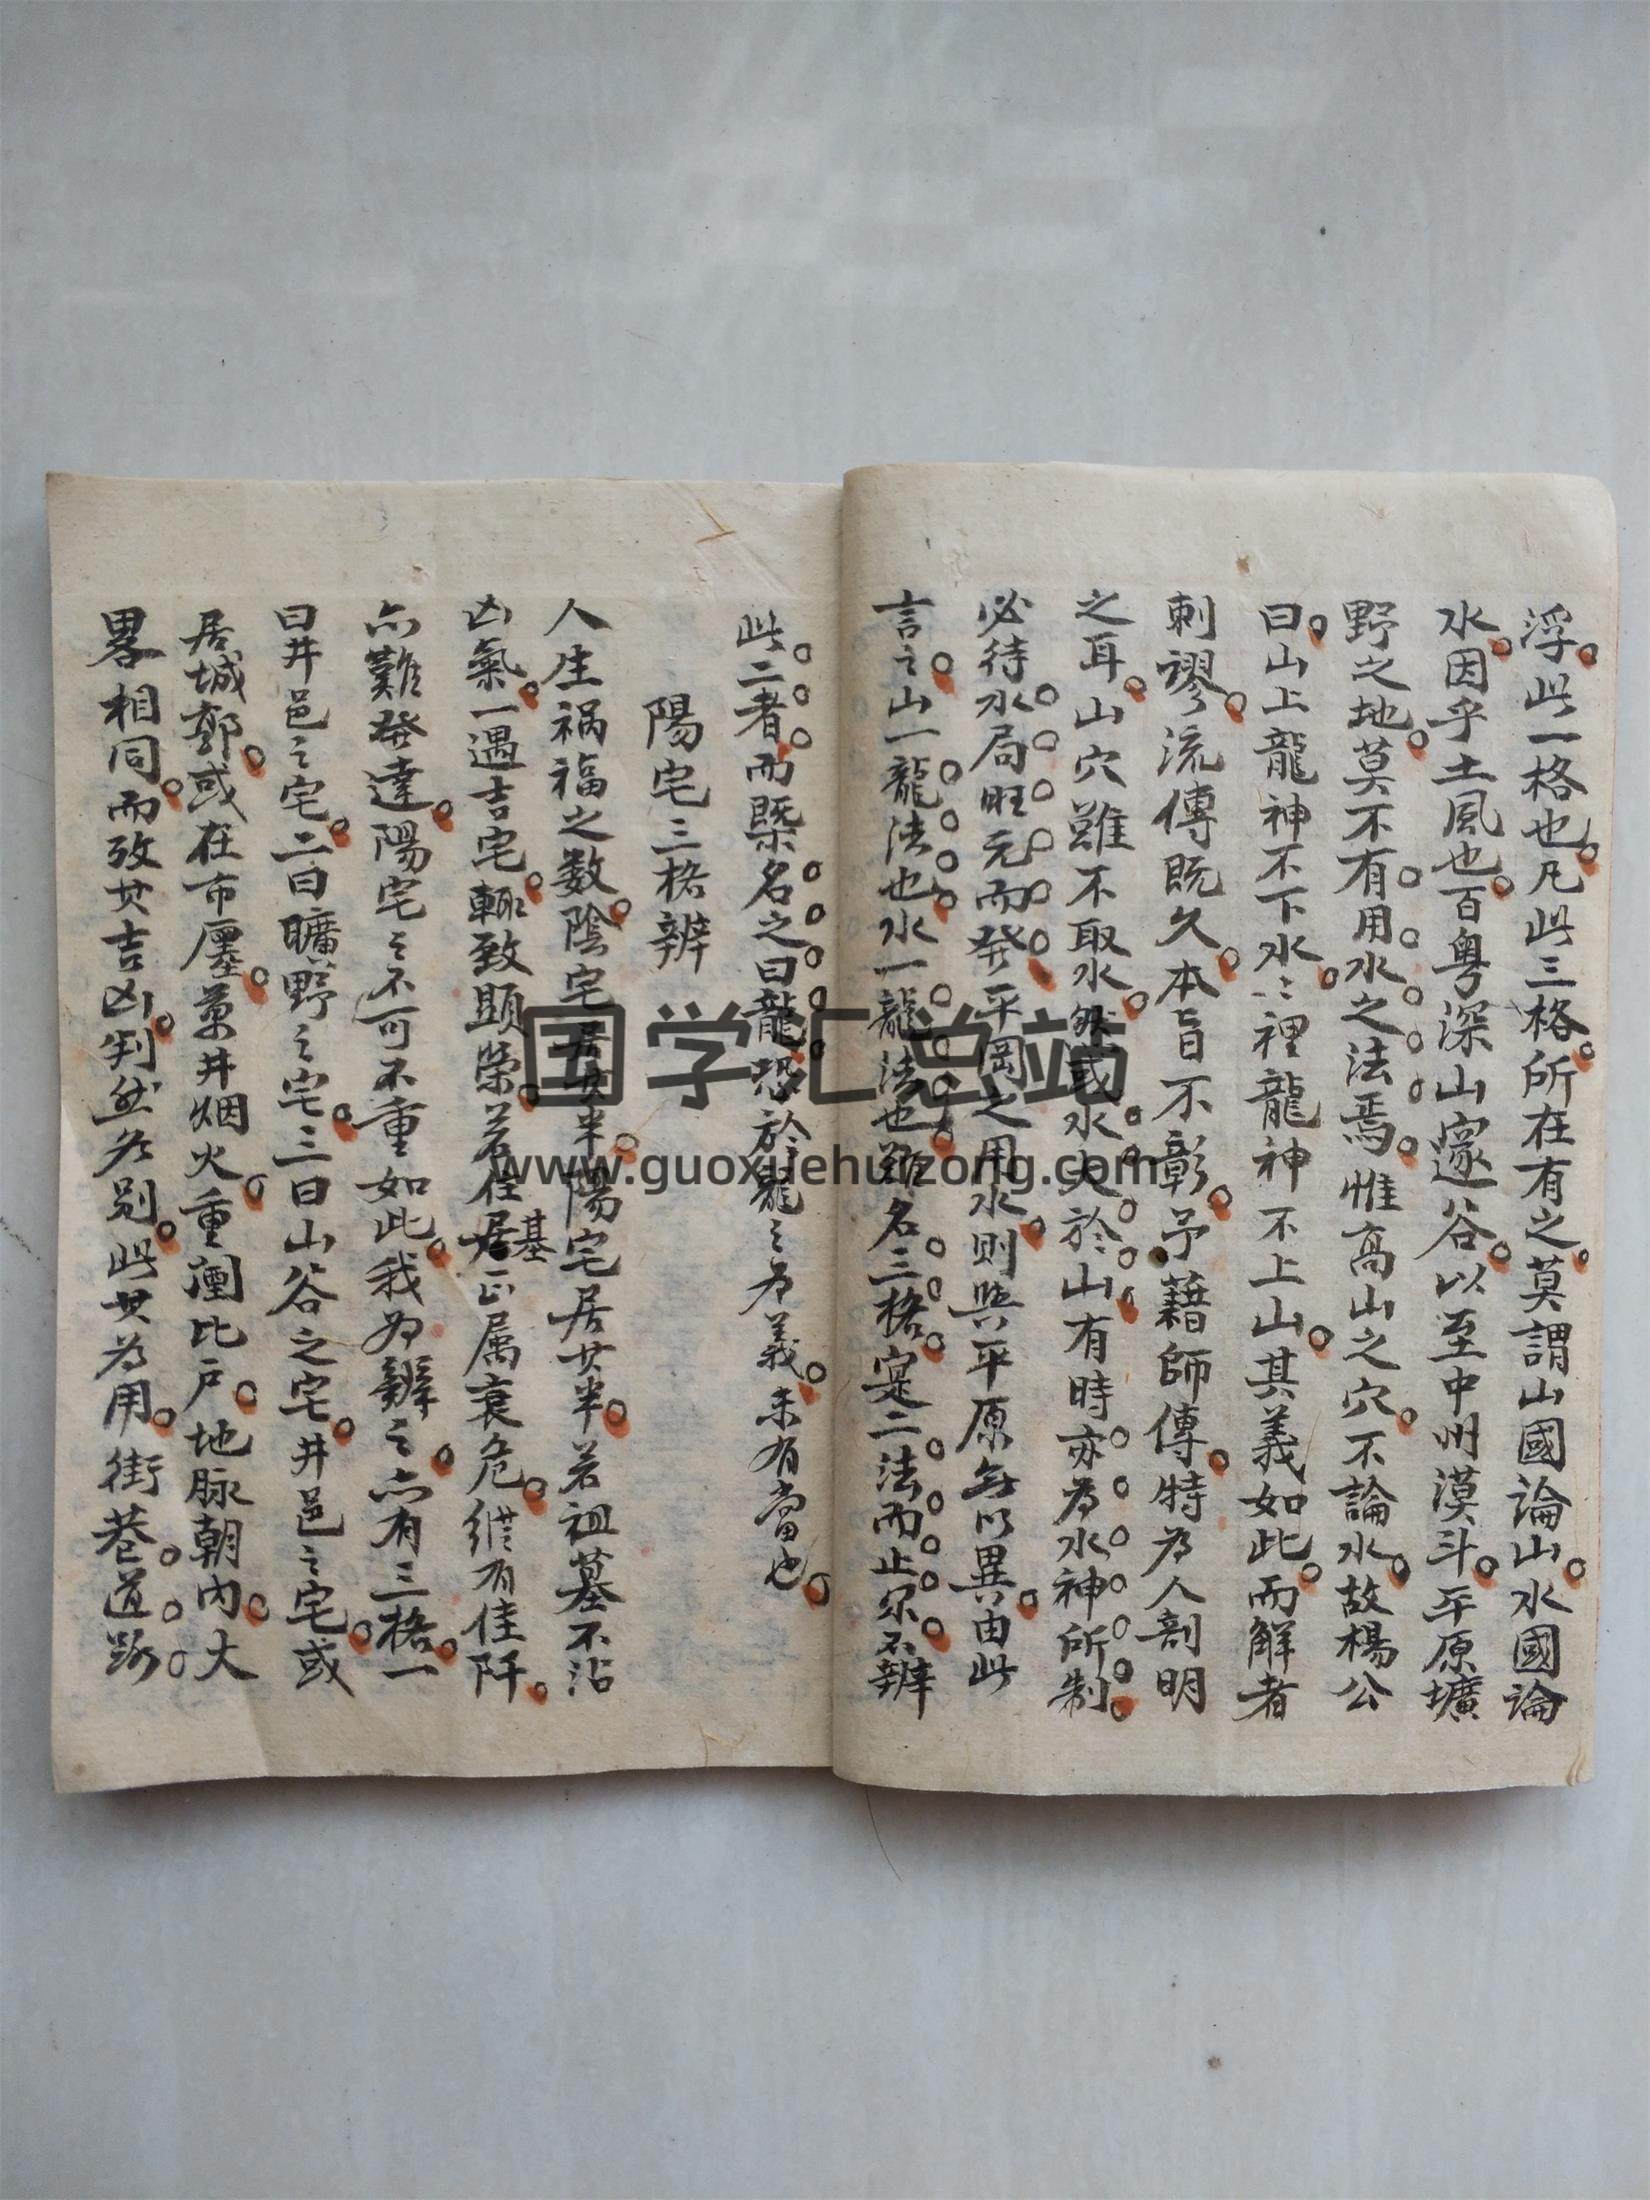 浮此一格也凡此三格所在有之莫謂山國論山水國論
水因乎土風也百粤深山邃谷以至中州漠斗平原壙
野之地莫不有用水之法焉惟高山之穴不論水故楊公
曰山上龍神不下水〻裡龍神不上山其義如此而解者
刺謬流傳既久本旨不彰予藉師傳特為人剖明
之耳山穴雖不取水然或水大於山有時亦為水神所制
必待水局旺元而發平岡之用水則與平原無以異由此
言之山一龍法也水一龍法也雖名三格寔二法而止尔不辨
此二者而槩名之曰龍恐於龍之為義未有當也
陽宅三格辨
人生禍福之数陰宅居其半陽宅居其半若祖墓不沾
凶氣一遇吉宅輒致顕榮若住居基正属衰危縱有佳阡
亦難發達陽宅之不可不重如此我為辨之亦有三格一
曰井邑之宅二曰曠野之宅三曰山谷之宅井邑之宅或
居城郭或在市廛萬井烟火重闉比户地脉朝内大
畧相同而攷其吉凶判然各别此其為用街巷道路
国学汇总站
www.guoxuehuizong.com